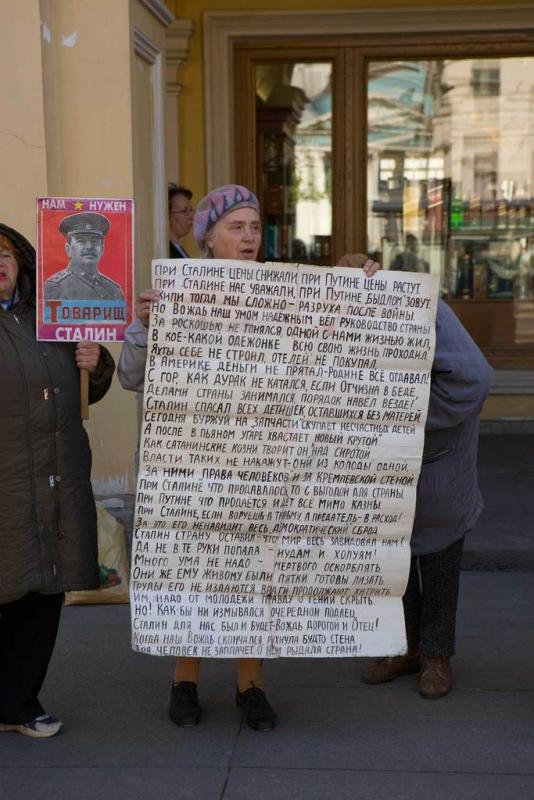 НАМ НУЖЕН
ТОВАРИЩ
СТАЛИН
ПРИ СТАЛИНЕ ЦЕНЫ СНИЖАЛИ, ПРИ ПУТИНЕ ЦЕНЫ РАСТУТ
ПРИ СТАЛИНЕ НАС УВАЖАЛИ, ПРИ ПУТИНЕ БЫДЛОМ ЗОВУТ.
ЖИЛИ ТОГДА МЫ СЛОЖНО - РАЗРУХА ПОСЛЕ ВОЙНЫ.
НО ВОЖДЬ НАШ УМОМ НАДЕЖНЫМ ВЁЛ РУКОВОДСТВО СТРАНЫ
ЗА РОСКОШЬЮ НЕ ГОНЯЛСЯ, ОДНОЙ С НАМИ ЖИЗНЬЮ ЖИЛ,
В КОЕ-КАКОЙ ОДЕЖОНКЕ ВСЮ СВОЮ ЖИЗНЬ ПРОХОДИЛ.
ЯХТЫ СЕБЕ НЕ СТРОИЛ, ОТЕЛЕЙ НЕ ПОКУПАЛ
В АМЕРИКЕ ДЕНЬГИ НЕ ПРЯТАЛ-РОДИНЕ ВСЁ ОТДАВАЛ!
С ГОР, КАК ДУРАК НЕ КАТАЛСЯ, ЕСЛИ ОТЧИЗНА В БЕДЕ,
ДЕЛАМИ СТРАНЫ ЗАНИМАЛСЯ, ПОРЯДОК НАВЁЛ ВЕЗДЕ!
СТАЛИН СПАСАЛ ВСЕХ ДЕТИШЕК ОСТАВШИХСЯ БЕЗ МАТЕРЕЙ
СЕГОДНЯ БУРЖУЙ НА ЗАПЧАСТИ СКУПАЕТ НЕСЧАСТНЫХ ДЕТЕЙ
А ПОСЛЕ В ПЬЯНОМ УГАРЕ ХВАСТАЕТ "НОВЫЙ КРУТОЙ"
КАК САТАНИНСКИЕ КОЗНИ ТВОРИТ ОН НАД СИРОТОЙ
ВЛАСТИ ТАКИХ НЕ НАКАЖУТ-ОНИ ИЗ КОЛОДЫ ОДНОЙ,
ЗА НИМИ "ПРАВА ЧЕЛОВЕКОВ" И ЗА КРЕМЛЕВСКОЙ СТЕНОЙ
ПРИ СТАЛИНЕ ЧТО ПРОДАВАЛОСЬ, ТО С ВЫГОДОЙ ДЛЯ СТРАНЫ
ПРИ ПУТИНЕ ЧТО ПРОДАЁТСЯ ИДЁТ ВСЁ МИМО КАЗНЫ
ПРИ СТАЛИНЕ, ЕСЛИ ВОРУЕШЬ-В ТЮРЬМУ, А ПРЕДАТЕЛЬ-В РАСХОД!
ЗА ЭТО ЕГО НЕНАВИДИТ ВЕСЬ ДЕМОКРАТИЧЕСКИЙ СБРОД
СТАЛИН СТРАНУ ОСТАВИЛ-ЧТО МИР ВЕСЬ ЗАВИДОВАЛ НАМ!
ДА НЕ В ТЕ РУКИ ПОПАЛА - ИУДАМ И ХОЛУЯМ!
МНОГО УМА НЕ НАДО - МЕРТВОГО ОСКОРБЛЯТЬ.
ОНИ ЖЕ ЕМУ ЖИВОМУ БЫЛИ ПЯТКИ ГОТОВЫ ЛИЗАТЬ
ТРУДЫ ЕГО НЕ ИЗДАЮТСЯ, ВРАГИ ПРОДОЛЖАЮТ ХИТРИТЬ
ИМ НАДО ОТ МОЛОДЕЖИ ПРАВДУ О ГЕНИИ СКРЫТЬ.
НО! КАК-БЫ НИ ИЗМЫВАЛСЯ ОЧЕРЕДНОЙ ПОДЛЕЦ
СТАЛИН ДЛЯ НАС БЫЛ И БУДЕТ-ВОЖДЬ ДОРОГОЙ И ОТЕЦ!
КОГДА НАШ ВОЖДЬ СКОНЧАЛСЯ РУХНУЛА БУДТО СТЕНА
ЗРЯ ЧЕЛОВЕК НЕ ЗАПЛАЧЕТ О НЁМ РЫДАЛА СТРАНА!